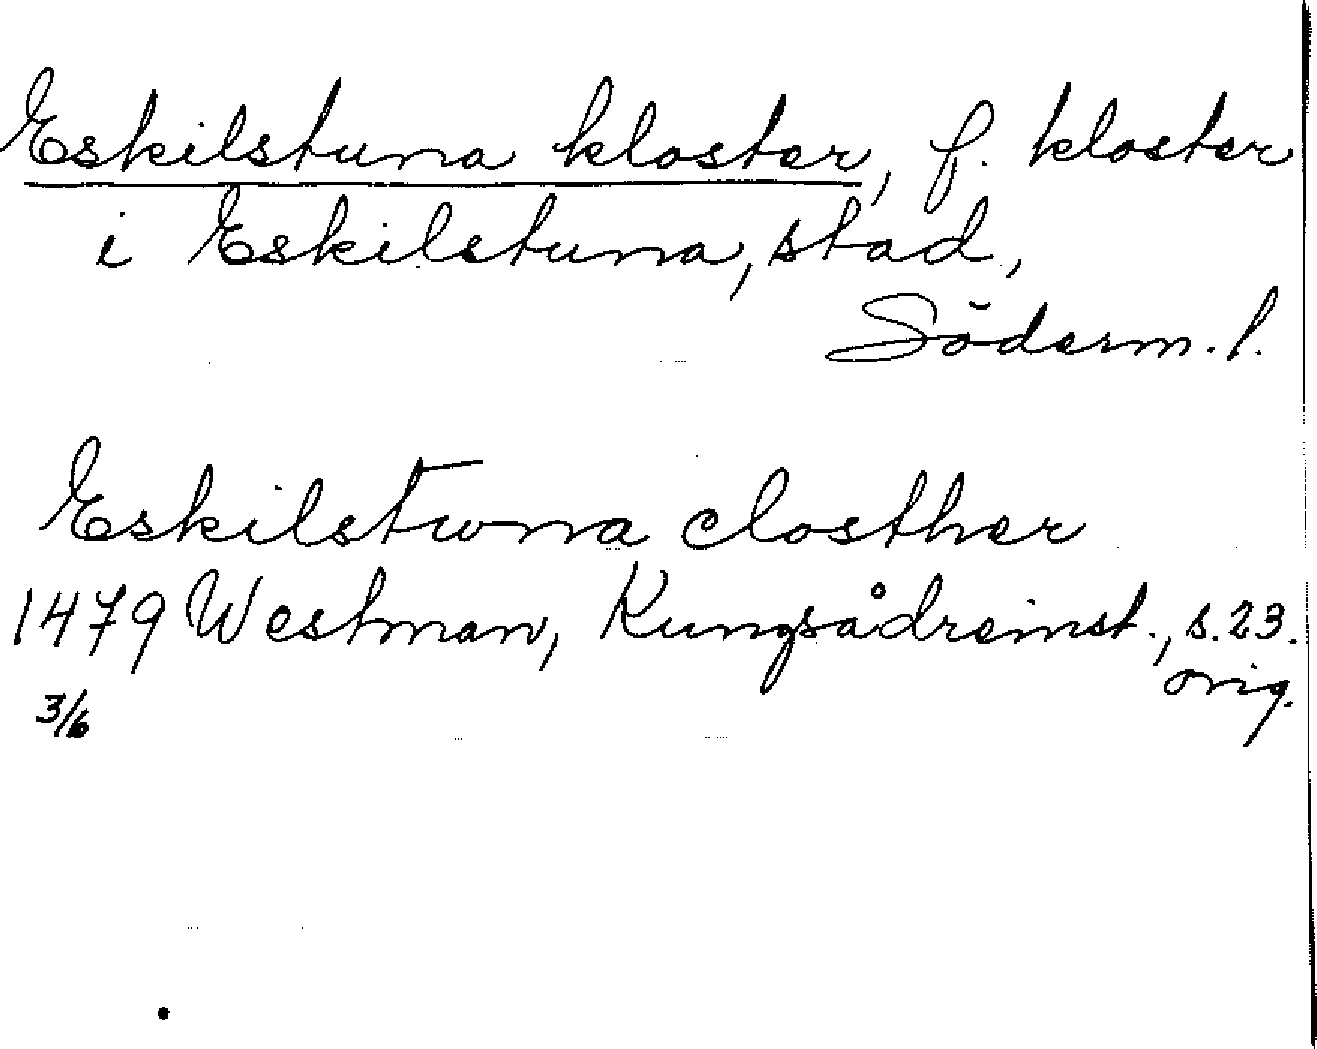 Eskilstuna kloster, f. kloster
i Eskilstuna, stad,
Söderm. l.
Eskilstwna closther
1479 Westman, Kungsådreinst., s. 23.
orig.
3/6